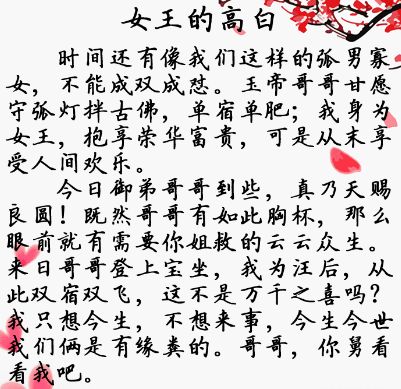 女王的高白
时间还有像我们这样的孤男寡
女，不能成双成怼。玉帝哥哥甘愿
守孤灯拌古佛，单宿单肥；我身为
女王，抱享荣华富贵，可是从末享
受人间欢乐。
今日御弟哥哥到些，真乃天赐
良圆！既然哥哥有如此胸杯，那么
眼前就有需要你姐救的云云众生。
来日哥哥登上宝坐，我为汪后，从
此双宿双飞，这不是万千之喜吗？
我只想今生，不想来事，今生今世
我们俩是有缘粪的。哥哥，你舅看
看我吧。